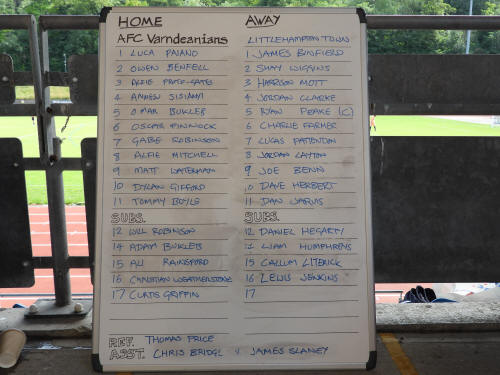 HOME AWAY
AFC Varndeanians LITTLEHAMPTON TOWN
1 LUCA PAIANO 1 JAMES BINFIELD
2 OWEN BENFELL 2 SHAY WIGGINS
3 ALFIE PRICE-GATES 3 HARRISON MOTT
4 4 JORDAN CLARKE
5 OMAR BUKLEB 5 RYAN PEAKE (C)
6 OSCAR PINNOCK 6 CHARLIE FARMER
7 GABE ROBINSON 7 LUCAS PATTENDEN
8 ALFIE MITCHELL 8 JORDAN LAYTON
9 MATT WATERMAN 9 JOE BENN
10 DYLAN GIFFORD 10 DAVE HERBERT
11 TOMMY BOYLE 11 DAN JARVIS
SUBS. SUBS.
12 WILL ROBINSON 12 DANIEL HEGARTY
14 ADAM BUKLEB 14 LIAM HUMPHREYS
15 ALI RAINSFORD 15 CALLUM
16 CHRISTIAN WEATHERSTONE 16 LEWIS JENKINS
17 CURTIS GRIFFIN 17
REF. THOMAS PRICE
ASST. CHRIS BRIDGL & JAMES SLANEY